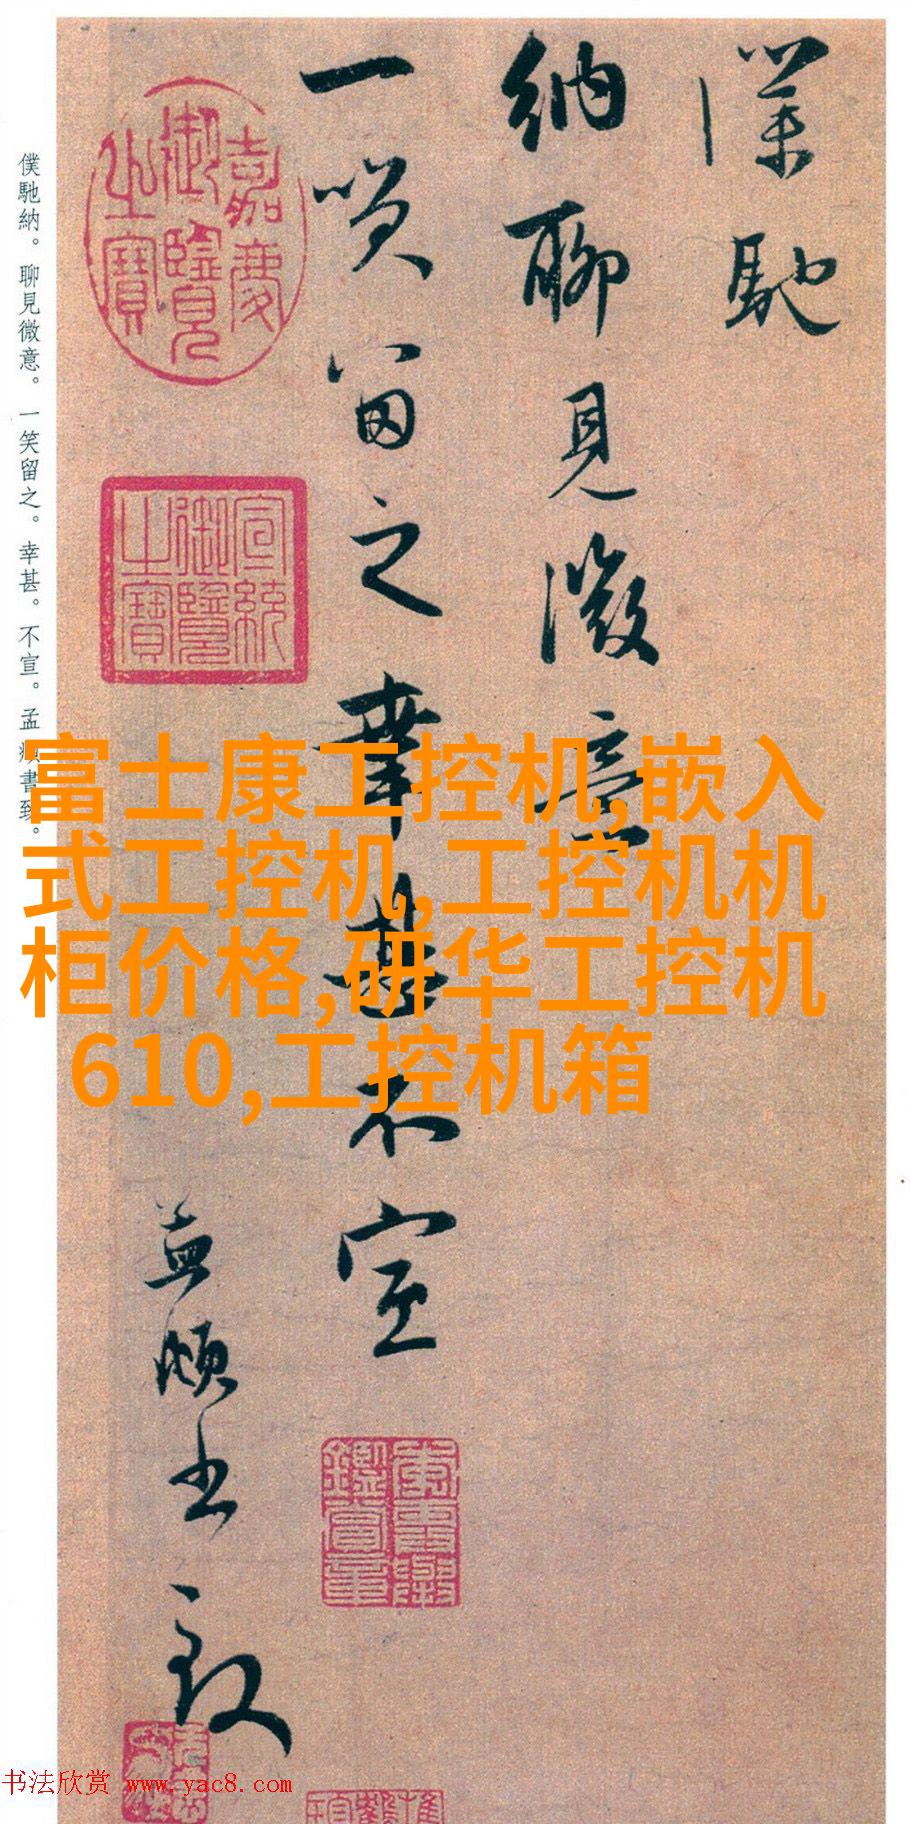 僕馳
納聊見微意
一笑留之幸甚不宣
孟頫書致
嘉慶御覽之寶
宣統御覽之寶
僕馳納。聊見微意。一笑留之。幸甚。不宣。孟頫書致。
富士康工控机,嵌入
式工控机,工控机机
柜价格,研华工控机
610,工控机箱
书法欣赏 www.yac8.com